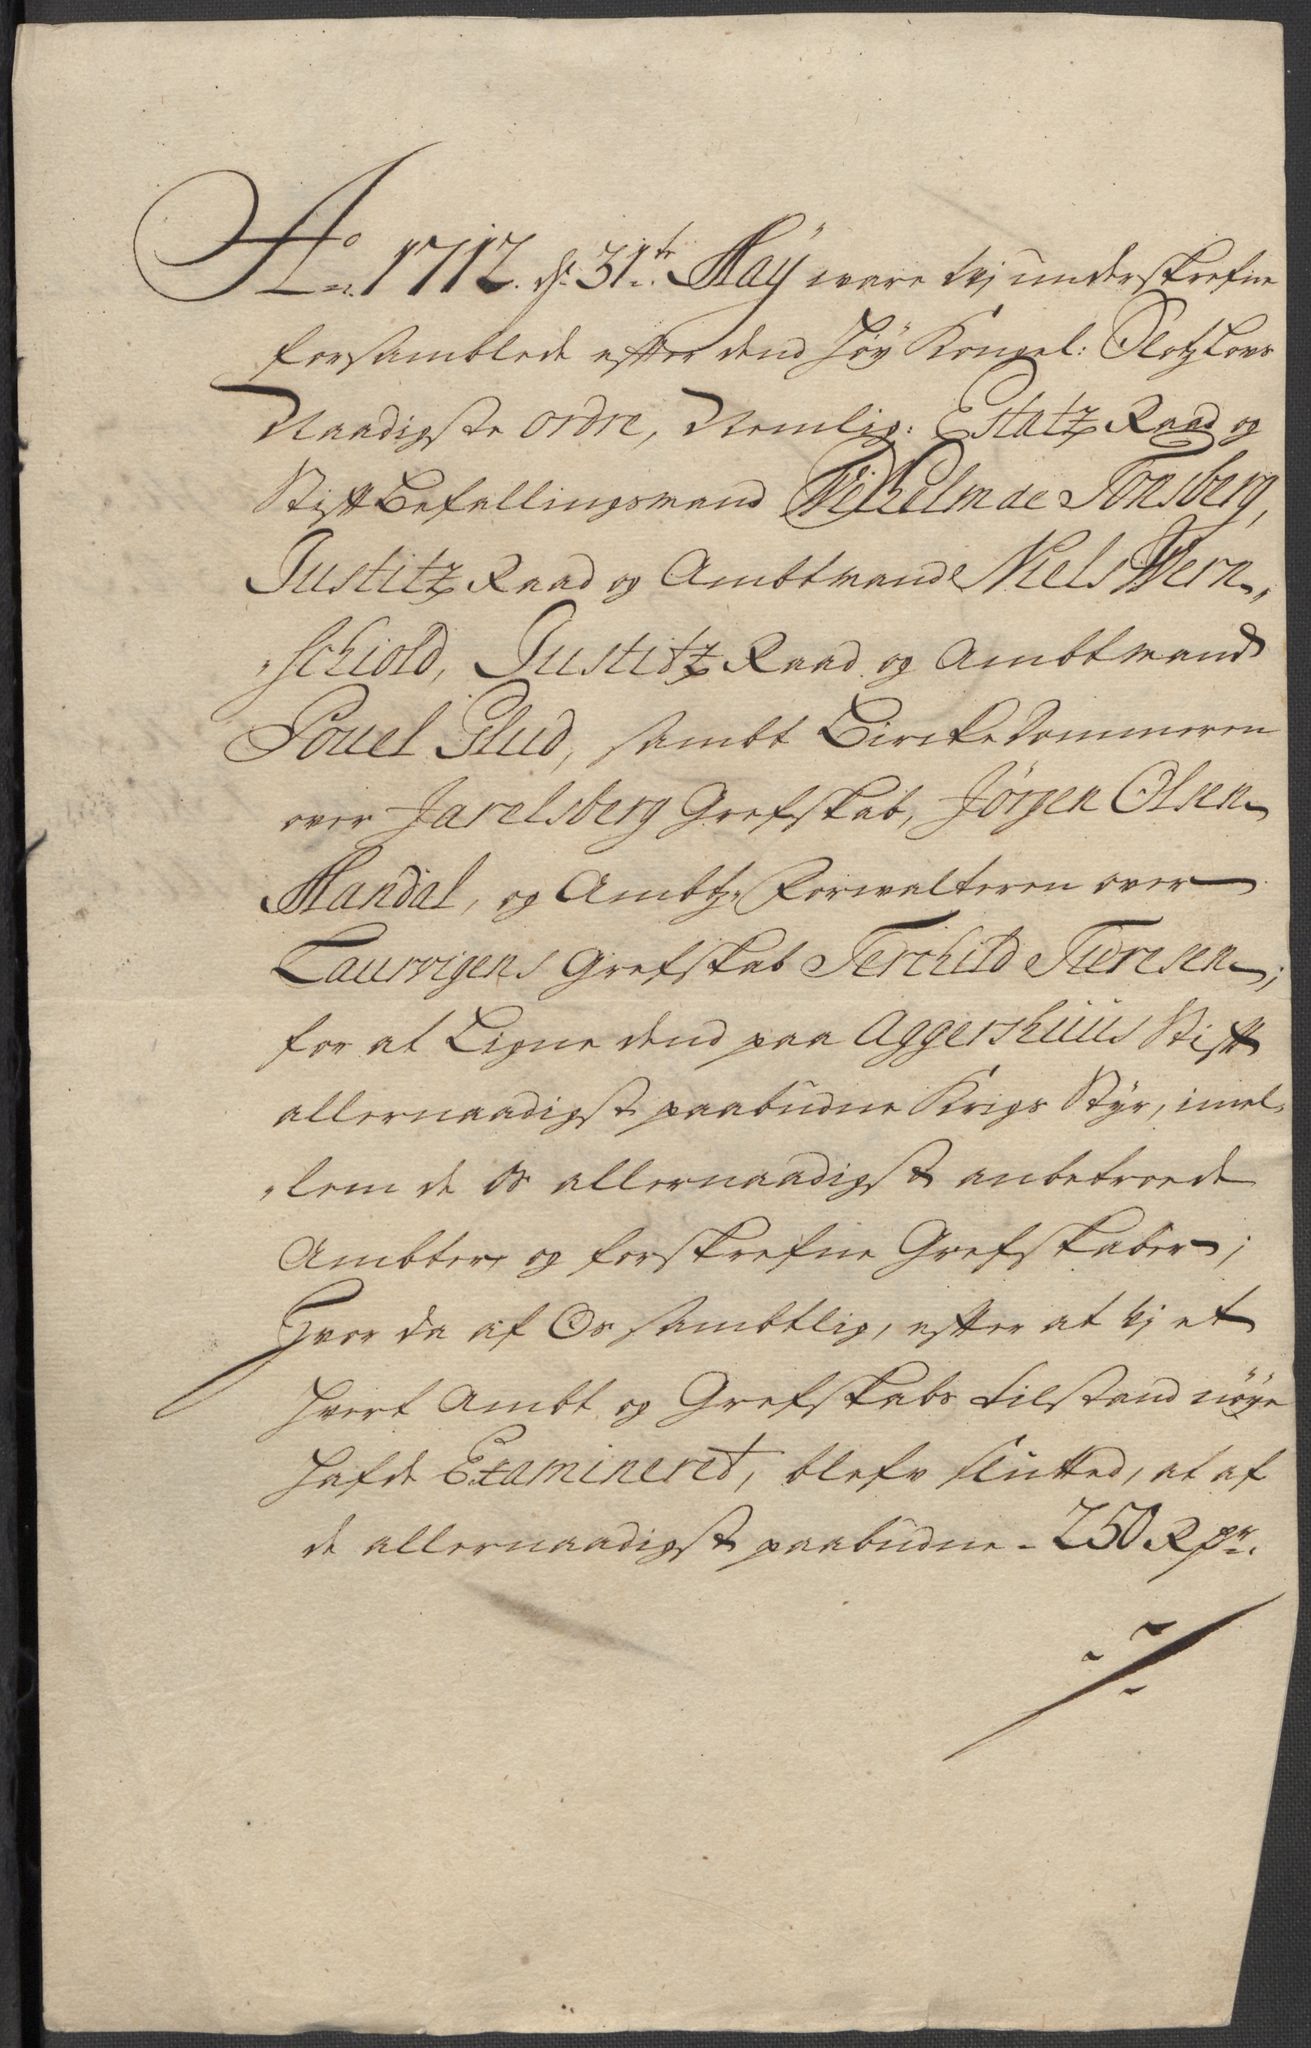 Ao. 1712. d. 31te. Maÿ ware wj underskrefne
forsamblede efter dend Høÿ Kongel: Slotz Lovs
Naadigste ordre, Nemlig: Estatz Raad og
Stift Befallingsmand Wilhelm de Tonsberg,
Justitz Raad og Ambtmand Niels Wern-
schiold, Justitz Raad og Ambtmand
Pouel Glud, sambt Bircke Dommeren
over Jarelsberg Grefskab, Jørgen Olsen
Mandal, og Ambtz-Forvalteren over
Laurvigens Grefskab Terchild Turesen;
for at Ligne dend paa Aggershuus Stift
allernaadigst paabudne Krigs Styr, imel-
lem de os allernaadigst anbetroede
Ambter, og forskrefne Grefskaber;
Hvor da af Os sambtlig, efter at vj et
hvert Ambt og Grefskabs tilstand nøye
hafde Examineret, blefv slutted, at af
de allernaadigst paabudne - 250 R pr.